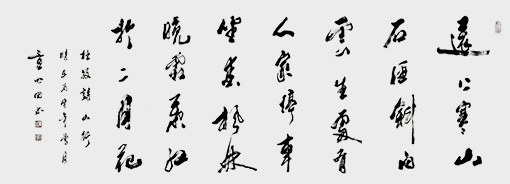 遠上寒山
石徑斜白
雲生處有
人家停車
坐愛楓林
晚霜葉紅
於二月花
杜牧詩山行